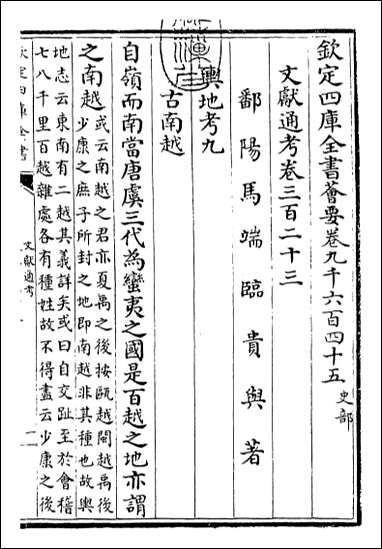 欽定四庫全書薈要卷九千六百四十五史部
文獻通考卷三百二十三
鄱陽馬端臨貴與著
輿地考九
古南越
自嶺而南當唐虞三代為蠻夷之國是百越之地亦謂
之南越或云南越之君亦夏禹之後按甌越閩越禹後
少康之庶子所封之地即南越非其種也故輿
地志云東南有二越其義詳矣或曰自交趾至於會稽
七八千里百越雜處各有種姓故不得盡云少康之後
欽定四庫全書
文獻通考
一